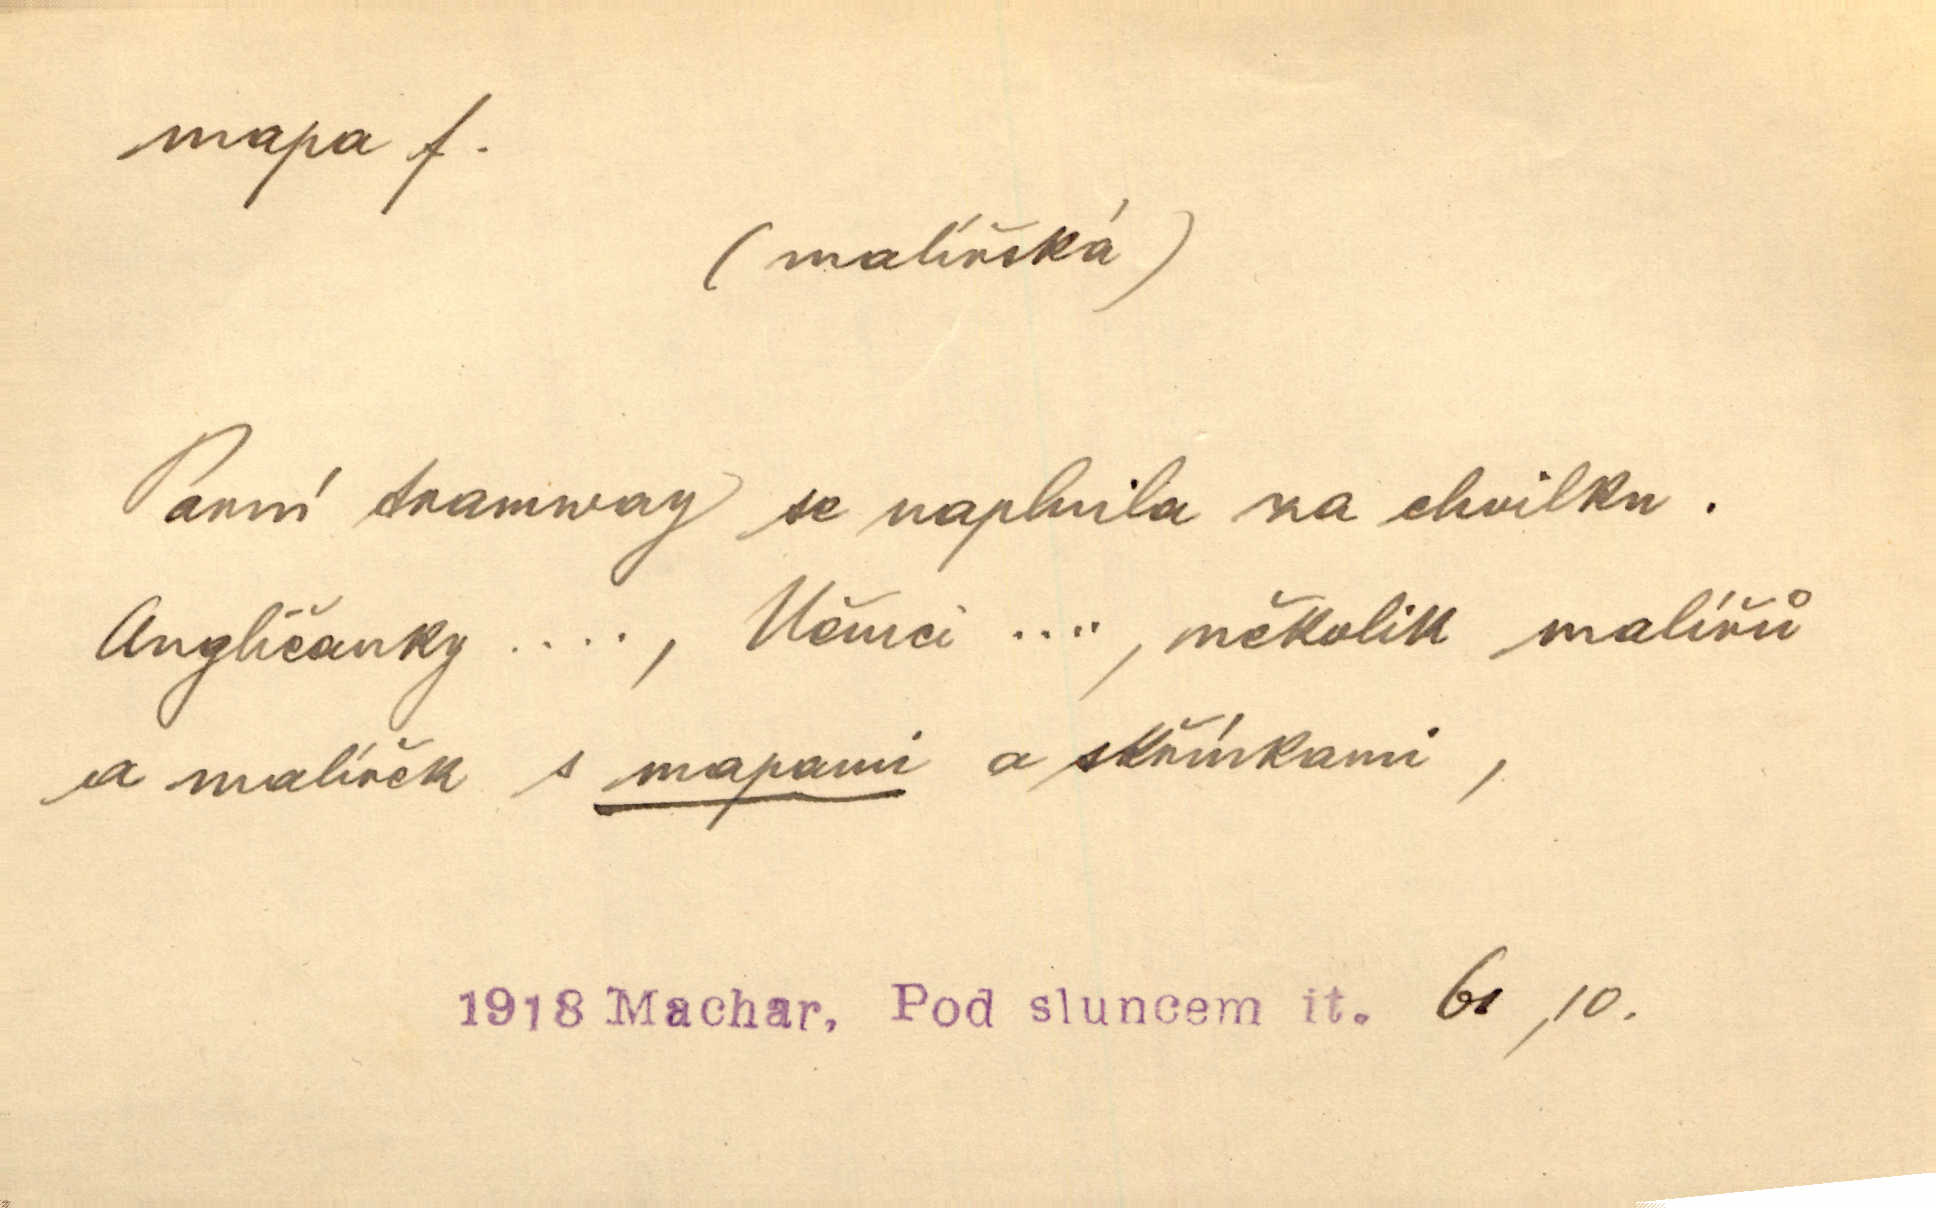 mapa f.
(malířská)
Parní tramway se naplnila za chvilku.
Angličanky ...., Němci ...., několik malířů
a malířek s mapami a skřínkami,
1918 Machar, Pod sluncem it. 61,10.